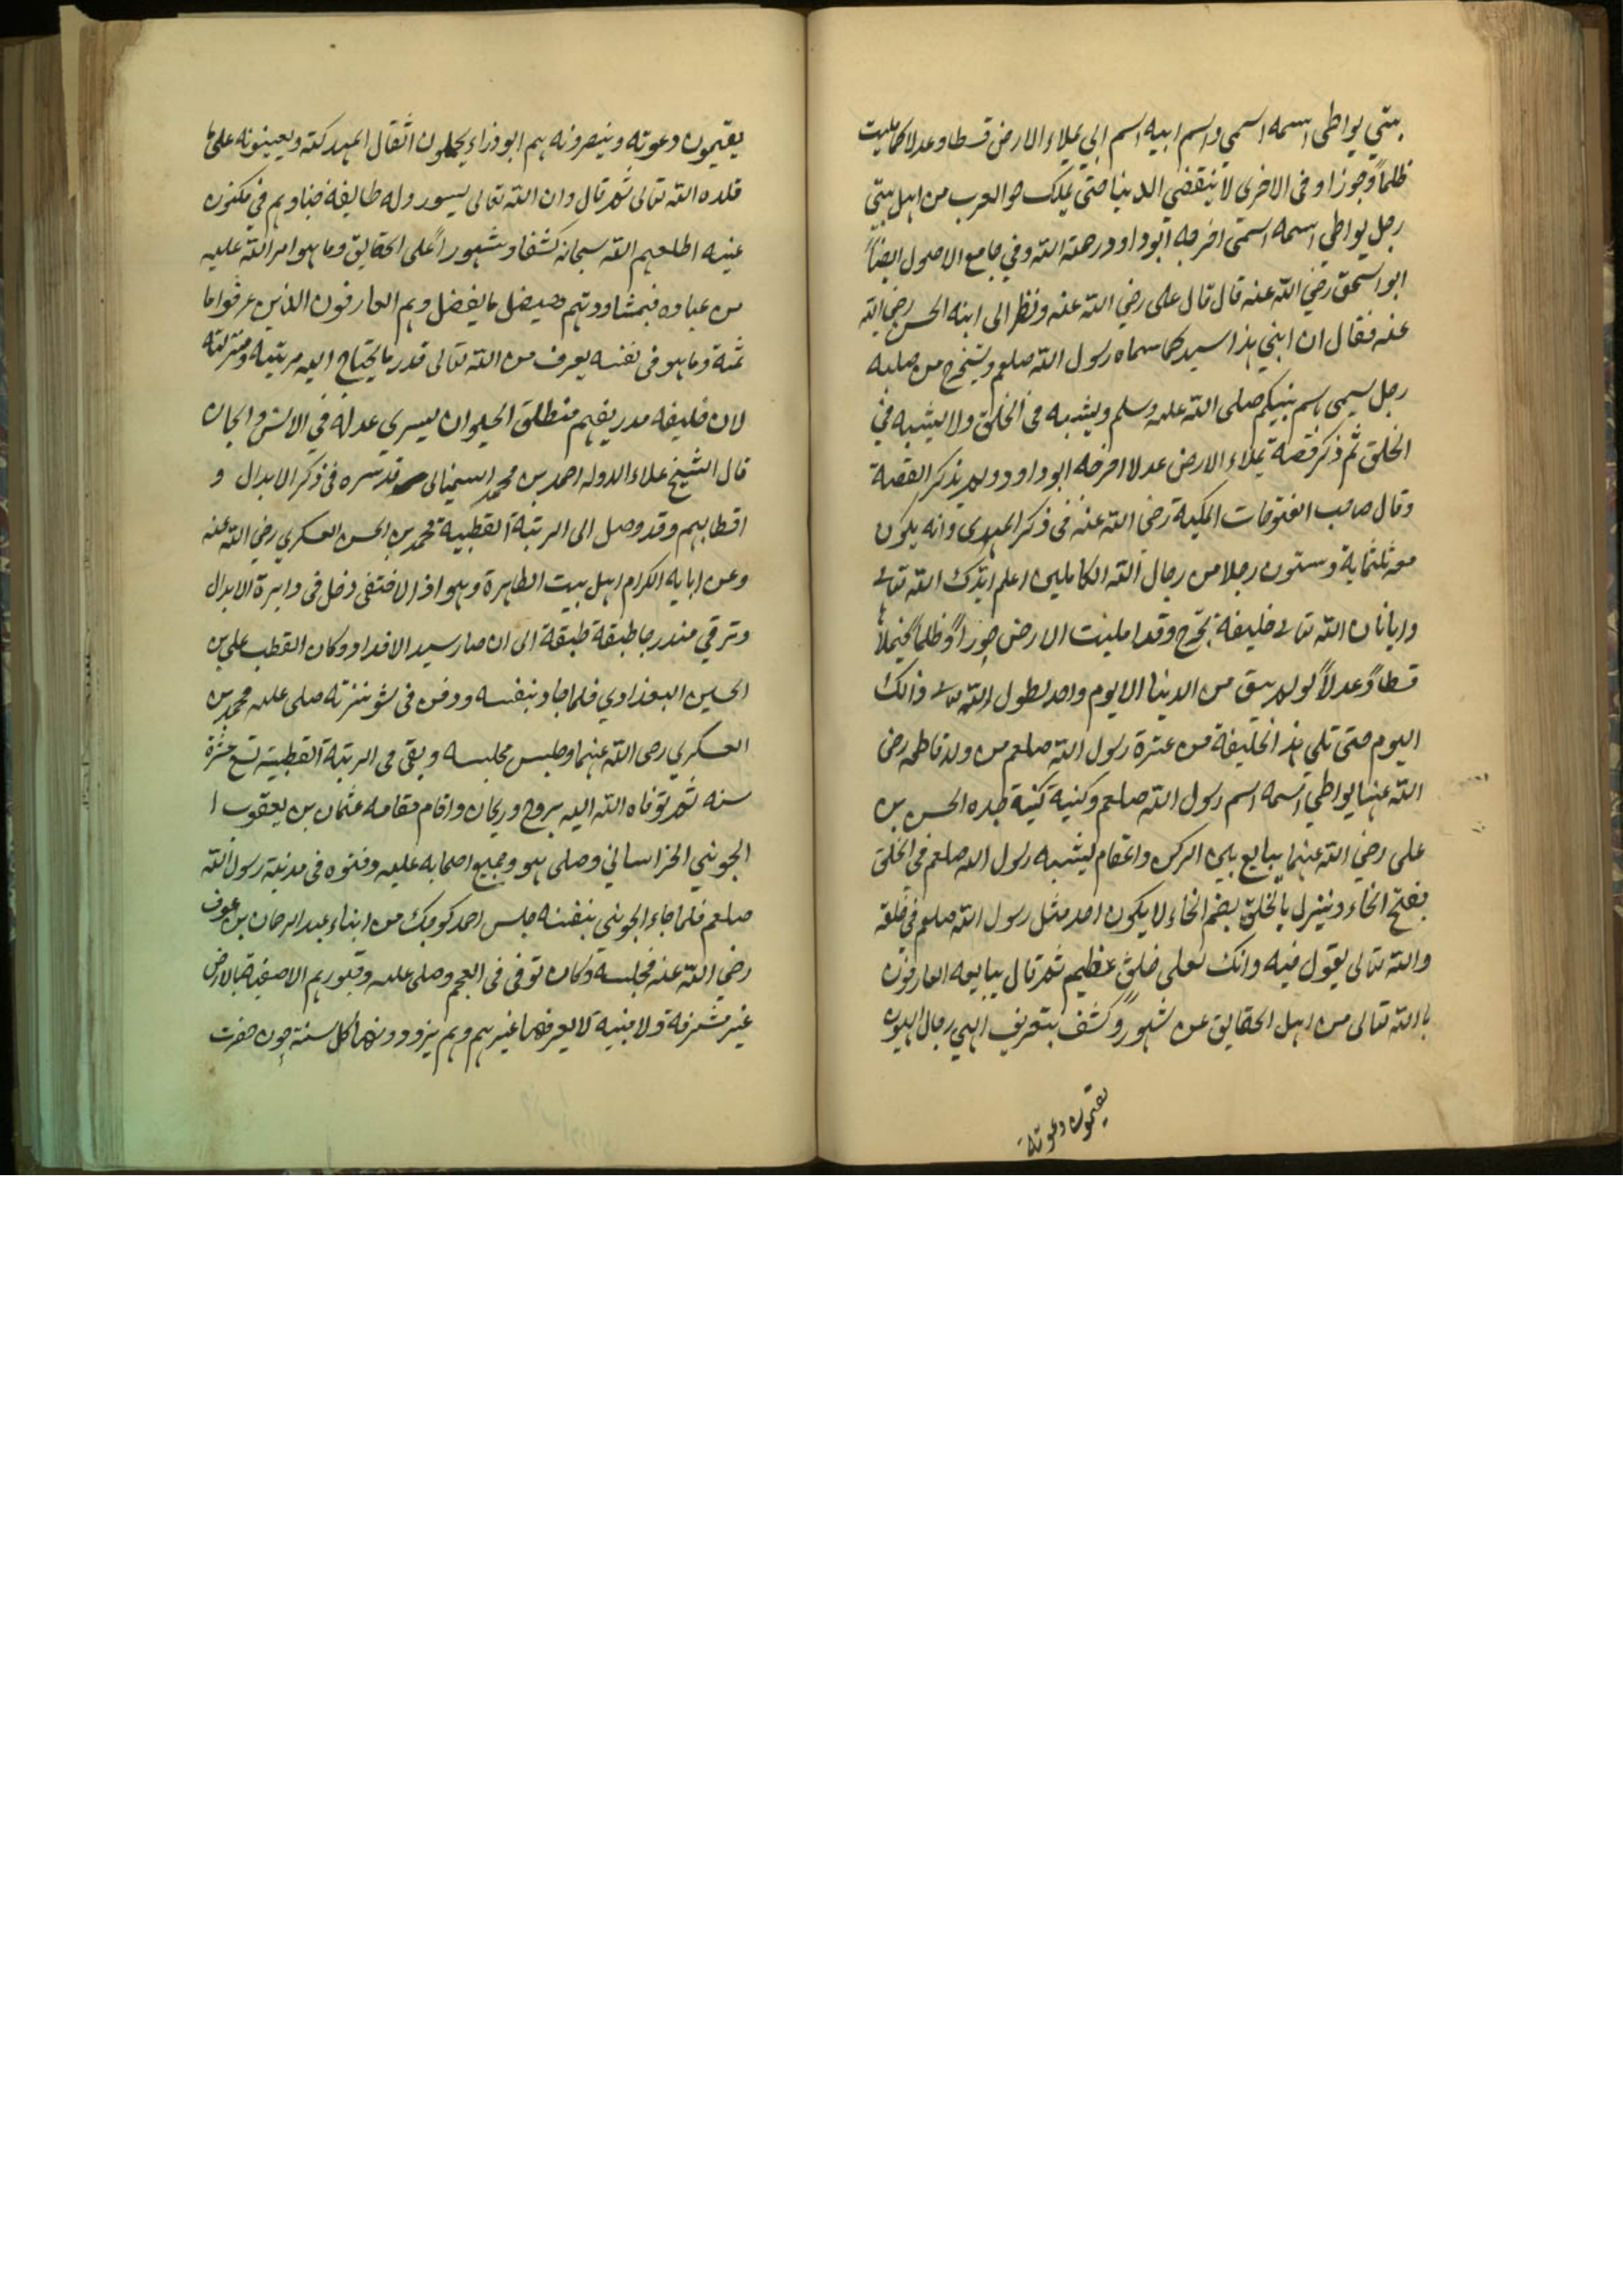 بيتي يواطي اسمه اسمي واسم ابيه اسم ابي يملاء الارض قسطا وعدلا كما مليت
ظلماً وجورا وفي الاخرى لا ينقضي الدنيا حتى يملك هو العرب من اهل بيتي
رجل يواطي اسمه اسمى اخرجه ابو داود رحمة الله وفي جامع الاصول ايضاً
ابو اسحق رضي الله عنه قال قال على رضي الله عنه ونظر الى ابنه الحسن رضي الله
عنه فقال ان ابني هذا سيد كما سماه رسول الله صلعم وسيخرج من صلبه
رجل يسمى باسم نبيكم صلى الله عليه وسلم ويشبه فى الخلق ولا يشبه في
الخلق ثم ذكر قصة يملاء الارض عدلا اخرجه ابو داود ولم يذكر القصة
وقال صاحب الفتوحات المكية رضى الله عنه فى ذكر المهدى وانه يكون
معه ثلثماية وستون رجلا من رجال الله الكاملين اعلم ايدك الله تعالى
وايانا ان الله تعالى خليفة يخرج وقد امليت الارض جوراً وظلماً فيملاها
قسطاً وعدلاً لو لم يبق من الدنيا الا يوم واحد لطول الله تعالى ذالك
اليوم حتى تلي هذ الخليفة من عترة رسول الله صلعم من ولد فاطمه رضى
الله عنها يواطي اسمه اسم رسول الله صلعم وكنيه كنية جده الحسن بن
على رضي الله عنهما يبايع بين الركن والمقام يشبه رسول الله صلعم فى الخلق
بفتح الخاء وينزل بالخلق بضم الخاء لا يكون احد مثل رسول الله صلعم في خلقه
والله تعالى يقول فيه وانك لعلى خلق عظيم ثم قال يبايعه العارفون
بالله تعالى من اهل الحقايق عن شهود وكشف بتعريف الهي رجال الهيون
يقيمون دعوته
يقيمون دعوته وينصرونه هم ابو وزراء يحملون اثقال المملكته ويعينونه على ما
قلده الله تعالى ثم قال وان الله تعالى يستوزر له طايفة خباوهم في مكنون
غيبه اطلعهم الله سبحانه كشفا وشهوراً على الحقايق وما هو امر الله عليه
من عباده فبمشاورتهم يفصل ما يفصل وهم العارفون الذين عرفوا ما
ثمة وما هو فى نفسه يعرف من الله تعالى قدر ما يحتاج اليه مرتبته ومنزلته
لان خليفه مدر يفهم منطلق الحيوان يسري عدله في الانس و الجان
قال الشيخ علاء الدوله احمد بن محمد السمنانى قدس سره فى ذكر الابدال و
اقطابهم وقد وصل الى الرتبة القطبية محمد بن الحسن العسكري رضي الله عنه
وعن ابايه الكرام اهل بيت الطاهرة وهو اذا اختفى دخل فى دايرة الابدال
وترقي متدرجا طبقة طبقة الى ان صار سيد الافداد وكان القطب على بن
الحسين البغدادي فلما جاد بنفسه ودفن فى شونيزته صلى عليه محمد بن
العسكري رضى الله عنهما وجلس مجلسه وبقى فى الرتبة القطبية تسع عشرة
سنه ثم توفاه الله اليه بروح وريحان واقام مقامه عثمان بن يعقوب ا
الجويني الخراساني وصلى هو وجميع اصحابه عليه ودفنوه فى مدنية رسول الله
صلعم فلما جاء الجويني بنفسه جلس احمد كوچك من ابناء عبد الرحمان بن عوف
رضي الله عنه مجلسه وكان توفى فى العجم وصلى عليه وقبورهم لاصقة بالارض
غير مشرفة ولا مبنيه لا يعرفها غيرهم وهم يزورونها كل سنة چون حضرت